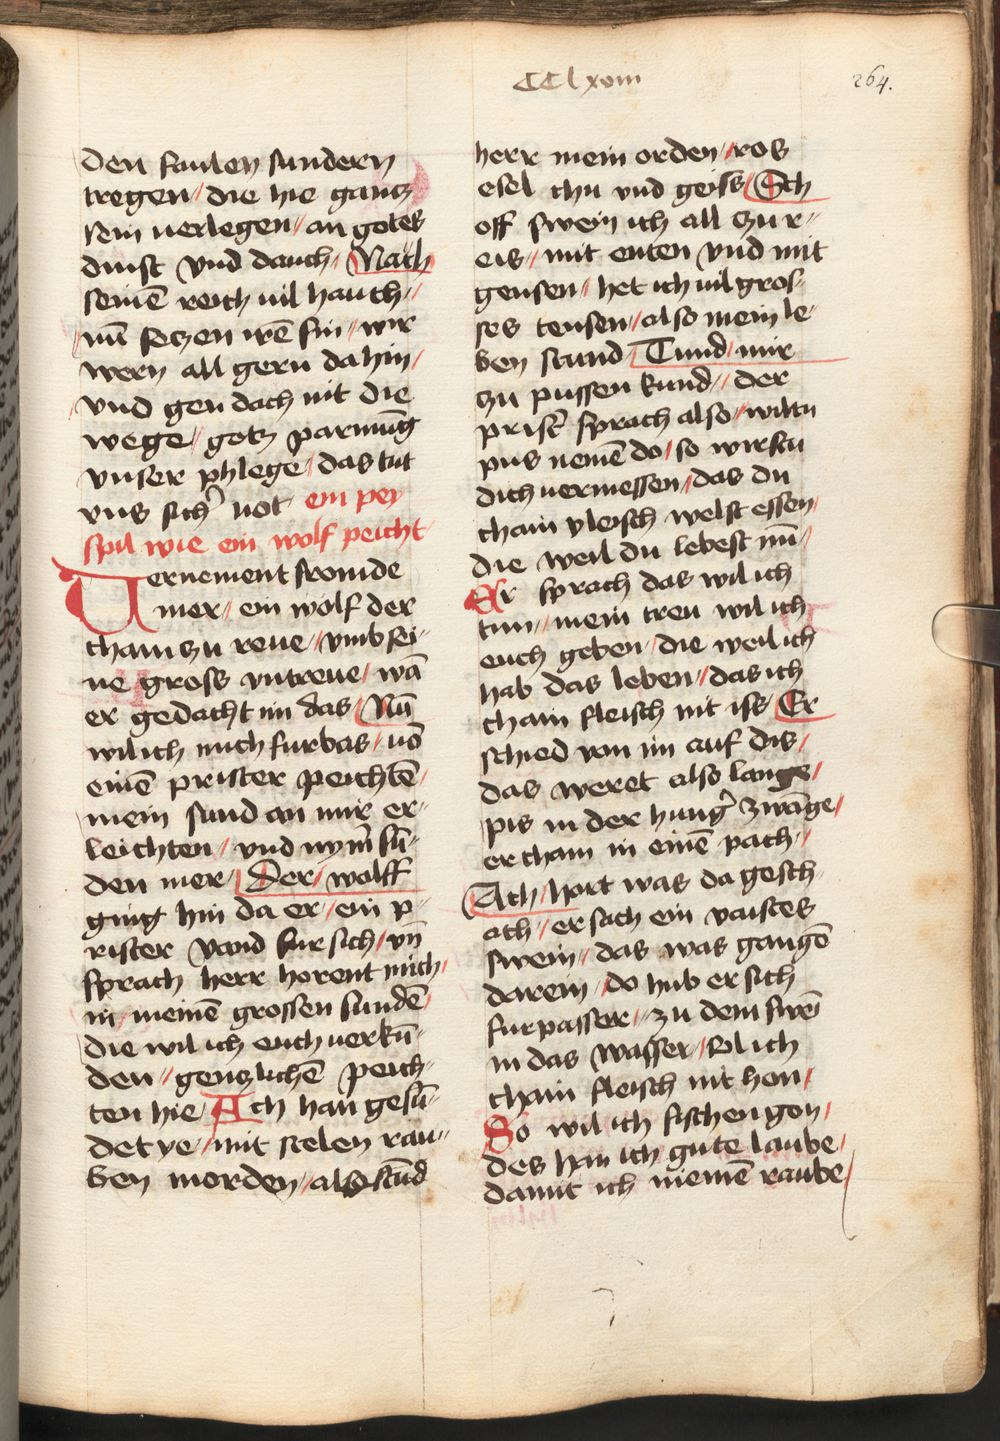 CClxviii
264.
den faulen sundern
tregen / die hie gancz
sein verlegen / an gotes
dinst vnd dauch / Nach
seinē reich vil hauch /
nū seczen irē sin / wir
wern all gern dahin /
vnd gen doch nit die
wege / gotz parmūg
vnser phlege / das tut
vns sich̾ not ein pey
spil wie ein wolf peicht
Uernement fromde
mer / ein wolf der
cham zu reue / vmb sei-
ne gross vntreue / wā
er gedacht im das / Nū
wil ich mich furbas / vō
einē prister peichtē /
mein sund an mir er-
leichten / vnd nym̄ sū-
den mer / Der / wolff
ging hin da er / ein p-
rister vand fur sich / vn̄
sprach herr horent mich /
in meinē grossen sundē
die wil ich euch verkū-
den / genczlichē peich-
ten hie / Ach han gesū-
det ye / mit stelen rau-
ben morden / als stūd
herr mein orden / ros
esel chu vnd geiss / Sch
off swein ich all zu r-
eis / mit enten vnd mit
gensen / het ich vil gros-
ses tensen / also mein le-
ben stand / Tund / mir
zu pussen kund / der
prist̾ sprach also / wiltu
pus nemē do / so wirstu
dich vermessen / das du
chain vleisch welst essen /
die weil du lebest nū /
Er sprach das wil ich
tun / mein treu wil ich
euch geben / die weil ich
hab das leben / das ich
chain fleisch nit iss / Er
schied von im auf dis /
das weret also lange /
pis in der hung̾ zwāge /
er cham in einē pach /
Ach / hort was da gesch-
ach / er sach ein vaistes
swein / das was gangē
darein / do hub er sich
furpasser / zu dem swei
in das wasser / sol ich
chain fleisch nit hon /
So wil ich fischen gon /
des han ich gute laube /
damit ich niemē raube /